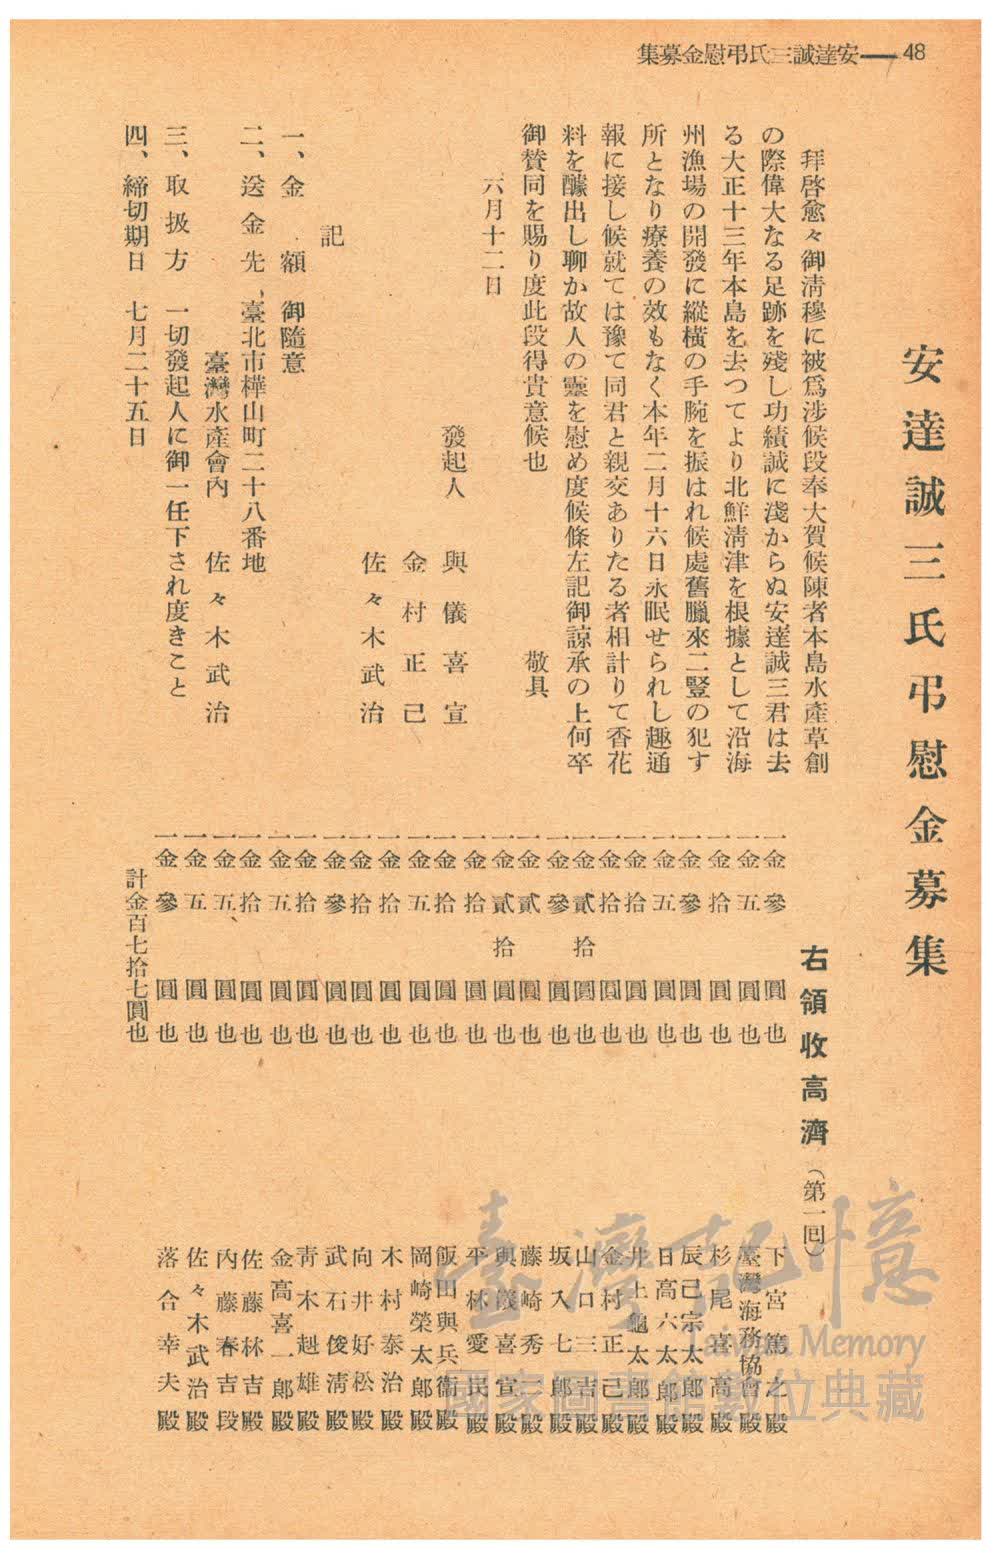 48——安達誠三氏弔慰金募集
安達誠三氏弔慰金募集
拜啓愈々御淸穆に被爲涉候段奉大賀候陳者本島水產草創
の際偉大なる足跡を殘し功績誠に淺からぬ安達誠三君は去
る大正十三年本島を去つてより北鮮淸津を根據として沿海
州漁場の開發に縱橫の手腕を振はれ候處舊臘來二豎の犯す
所となり療養の效もなく本年二月十六日永眠せられし趣通
報に接し候就ては豫て同君と親交ありたる者相計りて香花
料を醵出し聊か故人の靈を慰め度候條左記御諒承の上何卒
御賛同を賜り度此段得貴意候也 敬具
六月十二日
發起人 與儀喜宣
金村正己
佐々木武治
記
一、金額 御隨意
二、送金先、臺北市樺山町二十八番地
臺灣水產會內 佐々木武治
三、取扱方 一切發起人に御一任下され度きこと
四、締切期日 七月二十五日
右領收高濟(第一囘)
一金參圓也 下宮篤之殿
一金五圓也 臺灣海務協會殿
一金拾圓也 杉尾喜高殿
一金參圓也 辰己宗太郎殿
一金五圓也 日高六太郎殿
一金拾圓也 井上龜太郎殿
一金拾圓也 金村正己殿
一金貳拾圓也 山口三吉殿
一金參圓也 坂入七郎殿
一金貳圓也 藤崎秀三殿
一金貳拾圓也 與儀喜宣殿
一金拾圓也 平林愛民殿
一金拾圓也 飯田與兵衞殿
一金五圓也 岡崎榮太郎殿
一金拾圓也 木村泰治殿
一金拾圓也 向井好松殿
一金參圓也 武石俊淸殿
一金拾圓也 靑木尅雄殿
一金五圓也 金高喜一郎殿
一金拾圓也 佐藤林吉殿
一金五圓也 內藤春吉段
一金五圓也 佐々木武治殿
一金參圓也 落合幸夫殿
計金百七拾七圓也
臺灣記憶
Taiwan Memory
國家圖書館數位典藏